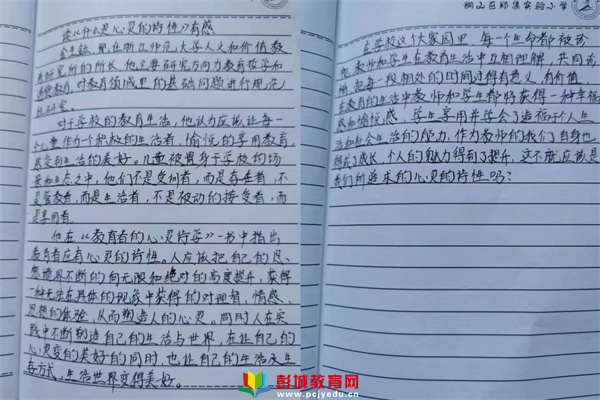 读《什么是心灵的诗性》有感
金生鈜,现任浙江师范大学人文和价值教
育研究所的所长,他主要研究方向为教育哲学和
道德教育,对教育领域里的基础问题进行规范
性研究。
对于学校的教育生活,他认为应该让每一
个儿童作为一个积极的生活者,愉悦的享用教育,
感受到生活的美好。儿童被置身于学校的场
景和生态之中,他们不是受训者,而是存在者,不
是受教者,而是生活者,不是被动的接受者,而
是享用者。
他在《教育者的心灵诗学》一书中指出
教育者应有心灵的诗性。人应该把自己的思
想境界不断的向无限和绝对的高度提升,获得
一种无法在具体的现象中获得的对理智,情感
思想的体验,从而塑造人的心灵。同时人在实
践中不断塑造自己的生活与世界,在让自己的
心灵变的美好的同时,也让自己的生活永生
存方式、生活世界变得美好。
铜山区郑集实验小学
在学校这个大家园里,每一个生命都被珍
视,教师和学生在教育生活中互相理解,共同谅
解,把每一段相处的时间过得有意义,有价值。
在教育的生活中教师和学生都将获得一种幸福
感和愉悦感,学生享用并学会了造福于个人生
活和社会生活的能力,作为教师的我们自身也
得到了成长,个人的魅力得到了提升,这不就应该是
我们所追求的心灵的诗性吗?
彭城教育网
www.pcjyedu.cn